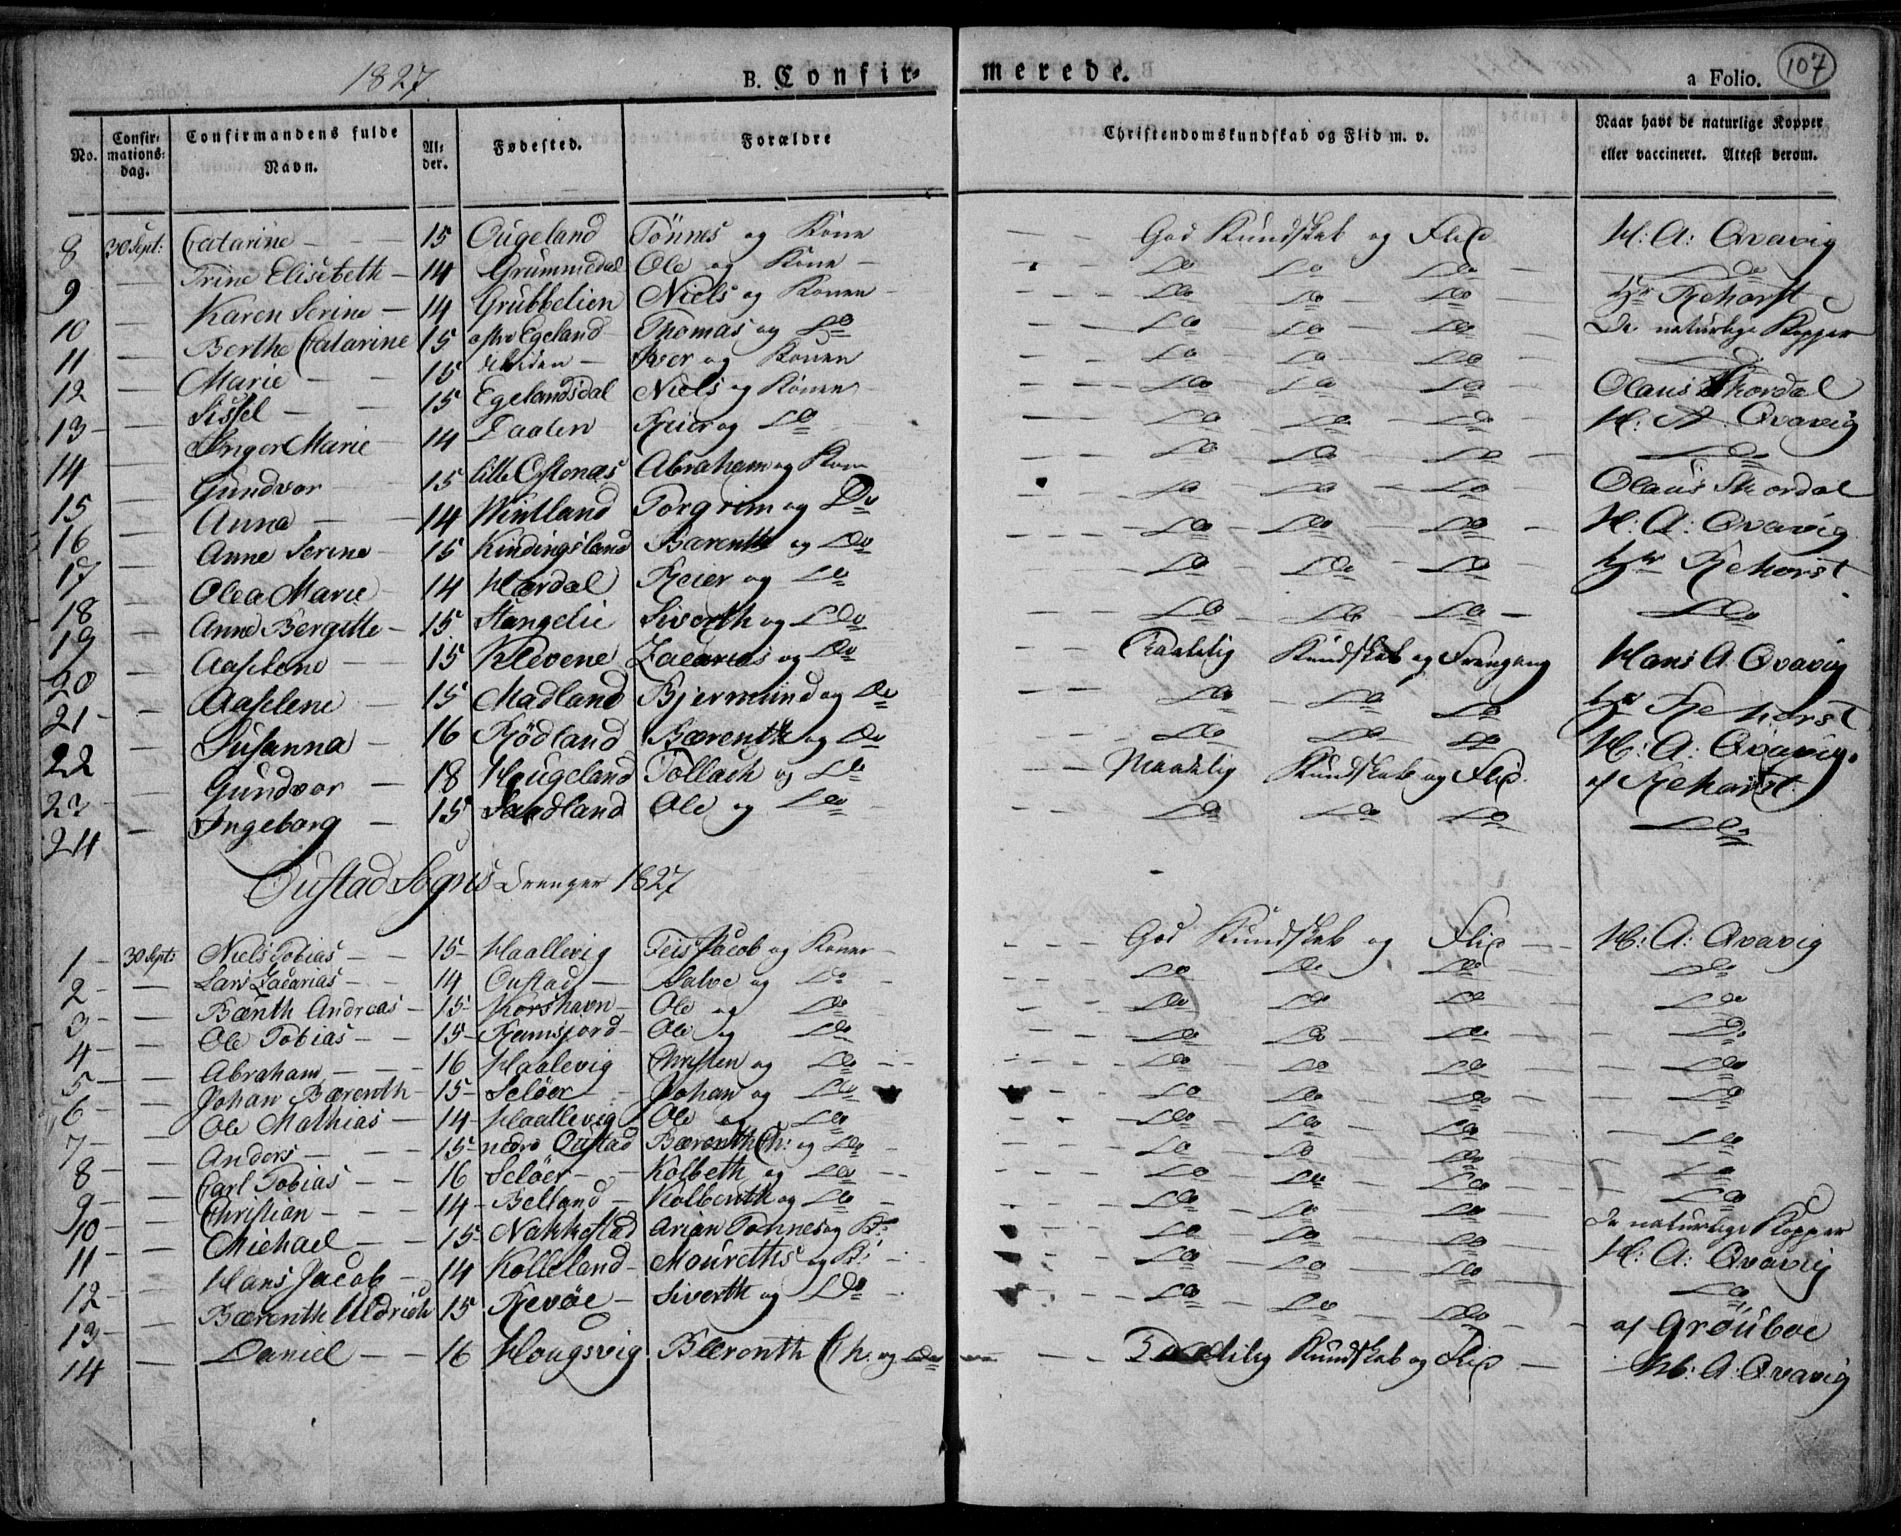 1827. B. Confir- merede. a Folio. 107
No. Confirmationsdag. Confirmandens fulde Navn. Alder. Fødested. Forældre Christendomskundskab og Flid m. v. Naar havt de naturlige Kopper eller vaccineret. Attest derom.
8 30 Sept: Catarine 15 Ougeland Tönnes og Kone God Kundskab og Flid H: A: Qvavig
9 Trine Elisebeth 14 Grummedal Ole og Kone Do Do Do Do
10 Karen Serine 14 Grubbelien Niels og Konen Do Do Do Hr Rehorst
11 Berthe Catarine 15 Egeland Thomas og Do Do Do Do De naturlige Kopper
12 Marie 15 Iver og Konen Do Do Do Do
13 Sissel 15 Egelandsdal Niels og Konen Do Do Do Olaus Skordal
14 Inger Marie 14 Daalen Reier og Do Do Do Do H: A: Qvavig
15 Gundvor 15 lille Ostenæs Abraham og Kone Do Do Do Do
16 Anna 14 Windland Torgrim og Do Do Do Do Olaus Skordal
17 Anne Serine 15 Kindingsland Bærenth og Do Do Do Do H: A: Qvavig
18 Olea Marie 14 Hærdal Reier og Do Do Do Do Hr Rehorst
19 Anne Bergitte 15 Stangelie Siverth og Do Do Do Do Do
20 Aaselene 15 Klevene Zacarias og Do Kundskab og Fremgang Hans A. Qvavig
21 Aaselene 15 Madland Bjermund og Do Do Do Do Hr Rehorst
22 Susanna 16 Rödland Bærenth og Do Do Do Do H: A: Qvavig.
23 Gundvor 18 Hougeland Tollach og Do Maadelig Kundskab og Flid. af Rehorst
24 Ingeborg 15 Sandland Ole og Do Do Do Do Do
Oustad Sogns Drenger 1827
1 30 Sept: Niels Tobias 15 Haallevig Teis Jacob og Konen God Kundskab og Flid H: A: Qvavig
2 Lars Zacarias 14 Oustad Salve og Do Do Do Do Do
3 Bænth Andreas 15 Korshavn Ole og Do Do Do Do Do
4 Ole Tobias 15 Ramsfjord Ole og Do Do Do Do Do
5 Abraham 16 Haalevig Christen og Do Do Do Do Do
6 Johan Bærenth 15 Selöer Johan og Do Do Do Do Do
7 Ole Mathias 14 Haallevig Ole og Do Do Do Do
8 Anders 15 nedre Oustad Bærenth Ch: og Do Do Do Do Do
9 Carl Tobias 16 Selöer Kolbeth og Do Do Do Do Do
10 Christian 14 Belland Kolbenth og Do Do Do Do Do
11 Michael 15 Nakkestad Arian Tønnes og K: Do Do Do De naturlige Kopper
12 Hans Jacob 14 Kolleland Mourethis og K: Do Do Do H: A: Qvavig
13 Bærenth Uldrich 15 Revöe Siverth og Do Do Do Do Do
14 Daniel 16 Hougsvig Bærenth Ch. og Do Kundskab og Flid af Gröuboe
H: A: Qvavig